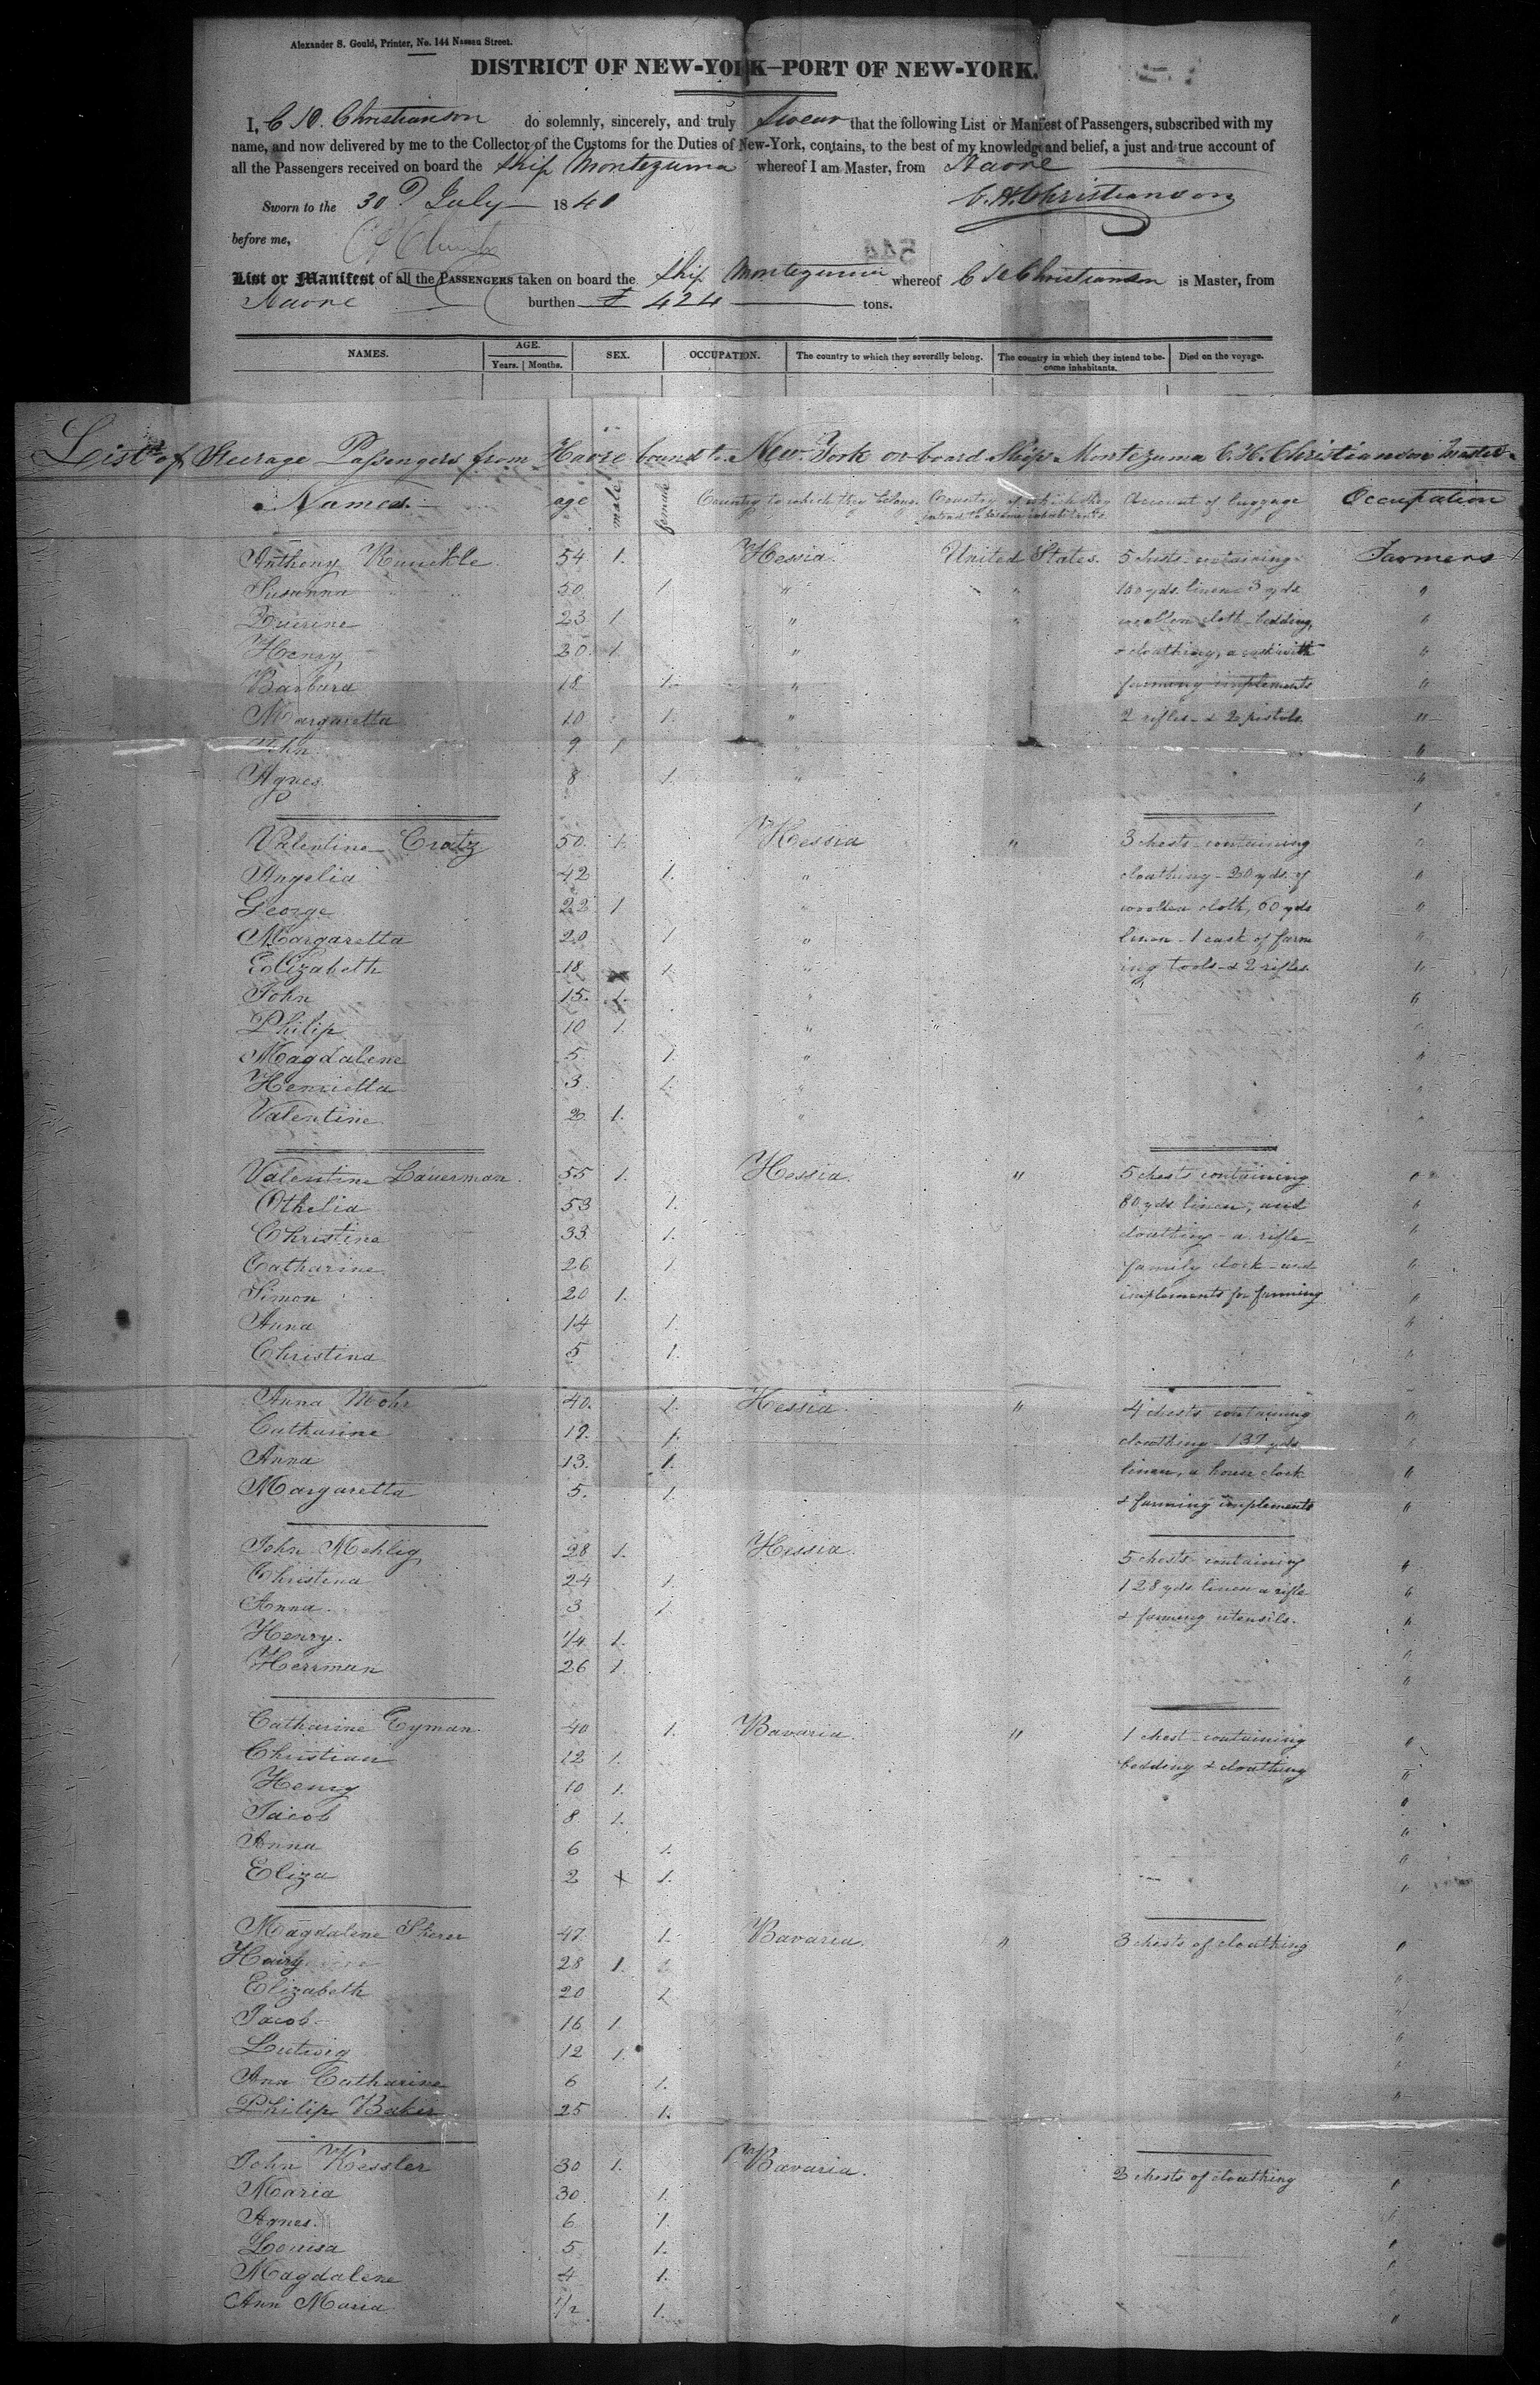 Alexander S. Gould, Printer, No. 144 Nassau Street.
DISTRICT OF NEW-YORK—PORT OF NEW-YORK.
I, C H. Christianson do solemnly, sincerely, and truly Swear that the following List or Manifest of Passengers, subscribed with my
name, and now delivered by me to the Collector of the Customs for the Duties of New-York, contains, to the best of my knowledge and belief, a just and true account of
all the Passengers received on board the Ship Montezuma whereof I am Master, from Havre
Sworn to the 30 July 1840 C. H. Christianson
before me,
List or Manifest of all the PASSENGERS taken on board the Ship Montezuma whereof C H Christianson is Master, from
Havre burthen 424 tons.
NAMES. AGE. Years. Months. SEX. OCCUPATION. The country to which they severally belong. The country in which they intend to become inhabitants. Died on the voyage.
List of Steerage Passengers from Havre bound to New York on board Ship Montezuma C. H. Christianson Master
Names. age male female Country to which they belong. Country of which they intend to become inhabitants Amount of luggage Occupation
Anthony Runckle 54 1. Hessia. United States. 5 chests containing Farmers
Susanna 50 1 " " 100 yds. linen 3 yds "
23 1 " " woollen cloth bedding, "
Henry 20 1. " & cloathing, a cask with "
Barbara 18 1. " farming implements "
Margaretta 10 1. " 2 rifles & 2 pistols "
John 9 1 " "
Agnes 8 1. " "
Valentine Cratz 50. 1. Hessia " 3 chests containing "
Angelia 42 1. " cloathing - 20 yds. of "
George 22 1 " woollen cloth, 60 yds "
Margaretta 20 1 " linen - 1 cask of farm "
Elizabeth 18 x 1. " ing tools & 2 rifles "
John 15. 1. " "
Philip 10 1. " " "
Magdalene 5 1. " "
Henrietta 3 1. " "
Valentine 2 1. " "
Valentine Lauerman. 55 1. Hessia. " 5 chests containing "
Othelia 53 1. 80 yds linen, and "
Christine 33 1. cloathing - a rifle - "
Catharine 26 1 family clock - and "
Simon 20 1. implements for farming "
Anna 14 1. "
Christina 5 1. "
Anna Mohr 40. 1. Hessia. " 4 chests containing "
Catharine 19. 1. cloathing - 137 yds "
Anna 13. 1. linen, a house clock "
Margaretta 5. 1. & farming implements "
John Mehlig 28 1. Hessia. 5 chests containing "
Christina 24 1. 128 yds linen a rifle "
Anna 3 1. & farming utensils. "
Henry. 1/4 1. "
Herrman 26 1. "
Catharine Eyman. 40 1. Bavaria. " 1 chest containing "
Christian 12 1. bedding & cloathing "
Henry 10 1. "
Jacob 8 1. "
Anna 6 1. "
Eliza 2 x 1. "
Magdalene Sherer 47 1. Bavaria. " 3 chests of cloathing "
Henry 28 1. "
Elizabeth 20 1 "
Jacob 16 1. "
Lutwig 12 1. "
Ana Catharine 6 1. "
Philip Baker 25 1.
John Kessler 30 1. Bavaria. 3 chests of cloathing "
Maria 30 1. "
Agnes. 6 1. "
Louisa 5 1. "
Magdalene 4 1. "
Ann Maria 1/2 1. "